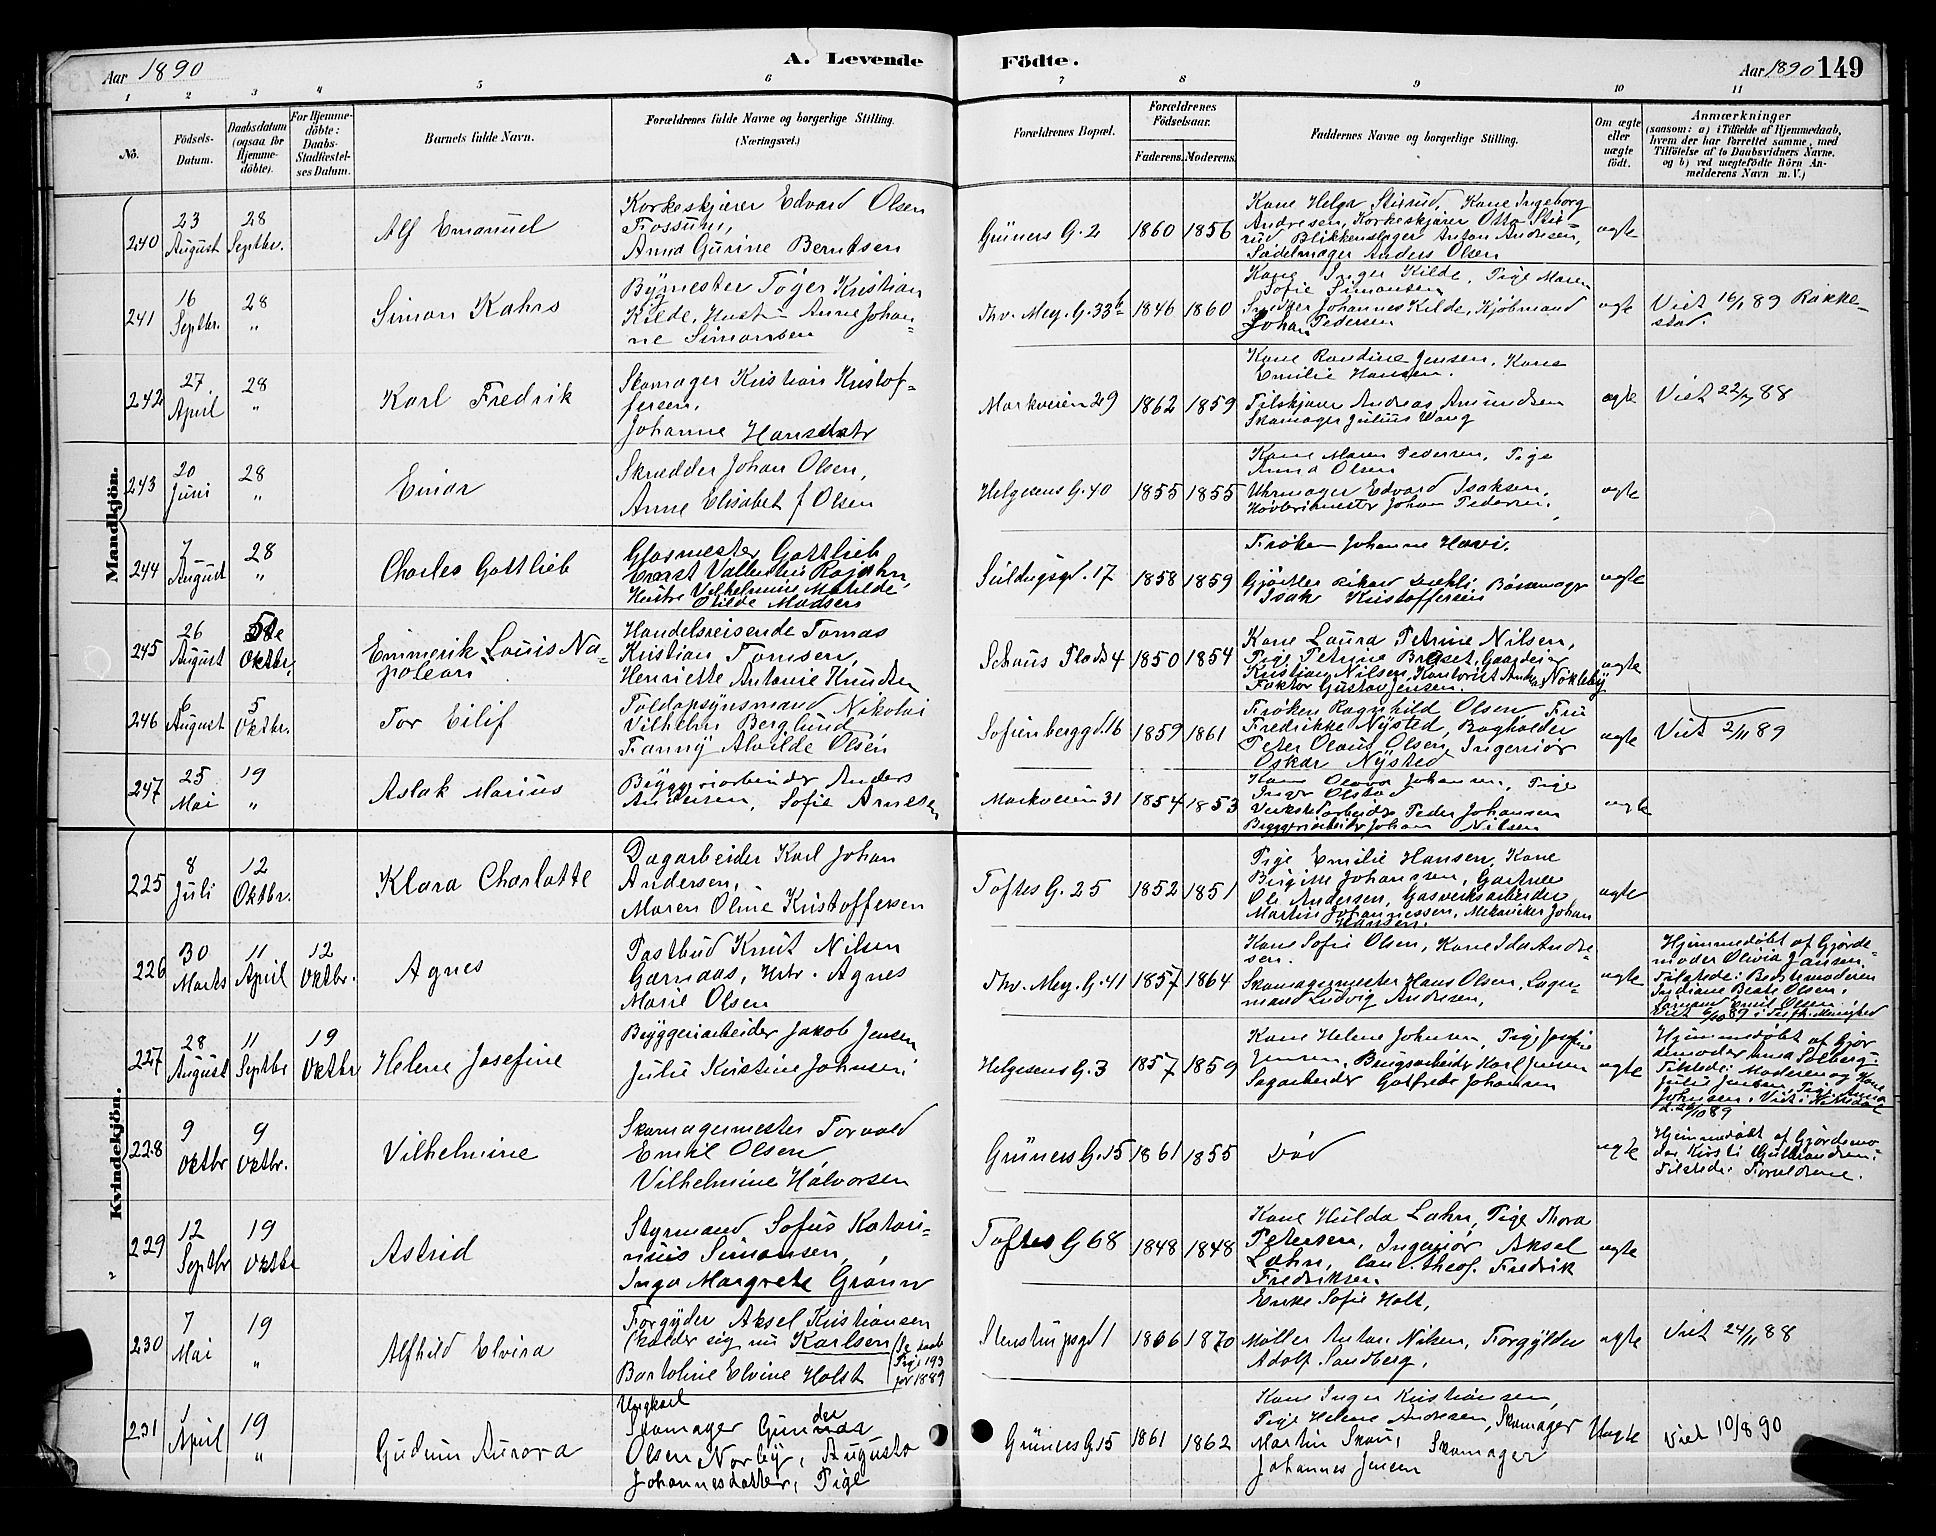 Aar 1890
A. Levende
Födte.
Aar 1890 149
1 2 3 4 5 6 7 8 9 10 11
No.
Födsels-
Datum.
Daabsdatum
(ogsaa for
Hjemme-
döbte).
For Hjemme-
döbte:
Daabs-
Stadfæstel-
ses Datum.
Barnets fulde Navn.
Forældrenes fulde Navne og borgerlige Stilling.
(Næringsvei.)
Forældrenes Bopæl.
Forældrenes
Födselsaar.
Faderens. Moderens.
Faddernes Navne og borgerlige Stilling.
Om ægte
eller
uægte
født.
Anmærkninger
(saasom: a) i Tilfælde af Hjemmedaab,
hvem der har forrettet samme, med
Tilföielse af to Daabsvidners Navne.
og b) ved uægtefödte Börn An-
melderens Navn m. V.)
Mandkjön.
240
23
August
28
Septbr.
Alf Emanuel
Korkeskjærer Edvard Olsen
Fossum,
Anna Gurine Berntsen
Grüners G. 2
1860 1856
Kone Helga Stirud, Kone Ingeborg
Andresen, Korkeskjærer Otto Sti-
rud Blikkenslager Anton Andresen,
Sadelmager Anders Olsen
ægte
241
16
Septbr.
28
"
Simon Kahrs
Bygmester Töger Kristian
Kilde, Hust. Anne Johan-
ne Simonsen
Thv. Mey. G. 33b
1846 1860
Kone Inger Kilde, Pige Maren
Sofie Simonsen
Snedker Johannes Kilde, Kjöbmand
Johan Pedersen
ægte
Viet 16/1 89 Rakke-
stad.
242
27
April
28
"
Karl Fredrik
Skomager Kristian Kristof-
fersen,
Johanne Hansdatr
Markveien 29
1862 1859
Kone Randine Jensen, Kone
Emilie Hansen.
Filskjærer Andreas Amundsen
Skomager Julius Wang
ægte
Viet 88
243
20
Juni
28
"
Einar
Skrædder Johan Olsen,
Anne Elisabet f. Olsen
Helgesens G. 40
1855 1855
Kone Maren Pedersen, Pige
Anna Olsen
Uhrmager Edvard Isaksen,
Johan Pedersen.
ægte
244
7
August
28
"
Charles Gottlieb
Glasmester Gottlieb
Ernst Valentin Rojahn,
Hustru Vilhelmine Matilde
Otilde Madsen
17
1858 1859
Frøken Johanne Hovi.
Gjörtler
Isak Kristoffersen
ægte
245
26
August
5te
Oktbr.
Emmerik Louis Na-
poleon
Handelsreisende Tomas
Kristian Tomsen,
Henriette Antonie Knudsen
Schous Plads 4
1850 1854
Kone Laura Petrine Nilsen,
Pige Petrine Gaardeier
Kristian Nilsen, Kontorist Nökleby
Faktor Gustav Jensen.
ægte
246
6
August
5
Oktbr.
Tor Eilif
Toldopsynsmand Nikolai
Vilhelm Berglund
Fanny Alvilde Olsen
Sofienberggd. 16
1859 1861
Frøken Ragnhild Olsen Fru
Fredrikke Nysted, Bogholder
Peter Olaus Olsen, Ingeniör
Oskar Nysted
ægte
Viet 2/11 89
247
25
Mai
19
"
Aslak Marius
Byggeriarbeider Anders
Andersen, Sofie Arnesen
Markveien 31
1854 1853
Kone Johansen, Pige
Inger Olstad
Verkstedarbeider Peder Johansen
Bryggeriarbeider Johan Nilsen
ægte
Kvindekjön.
225
8
Juli
12
Oktbr.
Klara Charlotte
Dagarbeider Karl Johan
Andersen,
Maren Oline Kristoffersen
Toftes G. 25
1852 1851
Pige Emilie Hansen, Kone
Birgitte Johannsen, Gartner
Ole Andersen, Gasverksarbeider
Martin Johannessen, Mekaniker Johan
Hansen.
ægte
226
30
Marts
11
April
12
Oktbr.
Agnes
Postbud Knut Nilsen
Garnaas, Hstr. Agnes
Marie Olsen
Thv. Mey. G. 41
1857 1864
Kone Sofie Olsen, Kone Ida Andre-
sen.
Skomagermester Hans Olsen, Lager-
mand Ludvig Andresen,
ægte
Hjemmedöbt af Gjorde-
moder Olivia Jansen
Tilstede: Bestemoderen
Indiane Beate Olsen,
Sömand Emil Olsen.
Viet 6/10 89 i Menighed
227
28
August
11
Septbr
19
Oktbr
Helene Josefine
Bryggeriarbeider Jakob Jensen
Julie Kristine Johnsen
Helgesens G. 3
1857 1859
Kone Helene Johnsen, Pige Josefine
Jensen, Brugsarbeider Karl Jensen
Sagarbeider Gotfred Johansen
ægte
Hjemmedöbt af Gjor-
demoder Anna Solberg
Tilstede: Moderen og Kone
Julie Jensen, Pige Anna
Johnsen. Viet i Nittedal
d. 20/10 89
228
9
Oktbr
9
Oktbr.
Vilhelmine
Skomagermester Torvald
Emil Olsen
Vilhelmine Halvorsen
Grüners G. 15
1861 1855
Död
ægte
Hjemmedöbt af Gjordemo-
der Kirsti Gulbrandsen
Tilstede: Forældrene.
229
12
Septbr
19
Oktbr
Astrid
Styrmand Sofus Katari-
nius Simonsen,
Inga Margrete Grønn
Toftes G 68
1848 1848
Kone Hulda Lahn, Pige Thora
Petersen, Ingeniör Aksel
Lahn, Cand. theol. Fredrik
Fredriksen
ægte
230
7
Mai
19
"
Alfhild Elvira
Forgylder Aksel Kristiansen
(kalder sig nu Karlsen
Bartoline Elvine Holst
(Se daab
Pige 193
for 1889
Stenstrupsgd 1
1866 1870
Enke Sofie Holt,
Møller Anton Nilsen, Forgylder
Adolf Sandberg,
ægte
Viet 24/11 88
231
1
April
19
"
Gudrun Aurora
Ungkarl
Skomager Gunnar
Olsen Norby, Augusta
Johannesdatter, Pige
Grüners G. 15
1861 1862
Kone Inger Kristiansen,
Pige Helene Andresen, Skomager
Martin Skou, Skomager
Johannes Jensen
Uægte
Viet 10/8 90